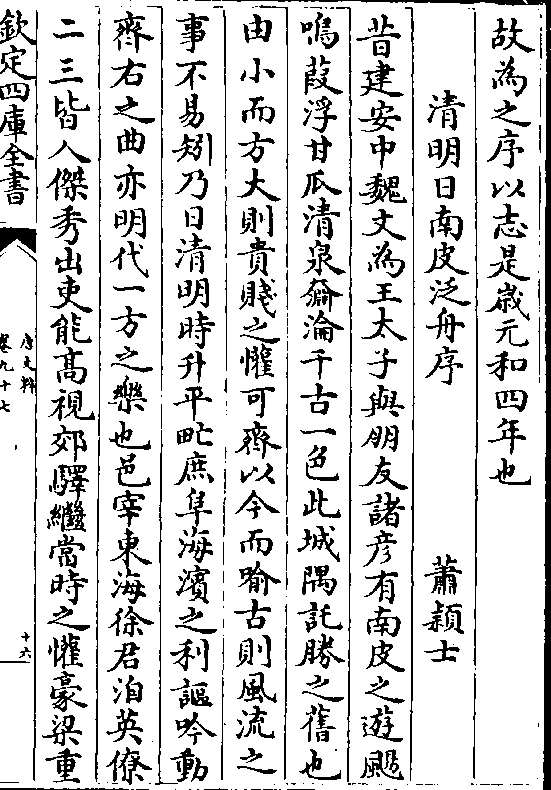 故為之序以志是嵗元和四年也
清明日南皮泛舟序 蕭穎士
昔建安中魏文為王太子與朋友諸彦有南皮之遊颺
鳴葭浮甘瓜清泉奫淪千古一色此城隅託勝之舊也
由小而方大則貴賤之懽可齊以今而喻古則風流之
事不易矧乃日清明時升平甿庶阜海濱之利謳吟動
齊右之曲亦明代一方之樂也邑宰東海徐君洎英僚
二三皆人傑秀出吏能高視郊驛繼當時之懽豪梁重
欽定四庫全書
唐文粹
卷九十七
十六